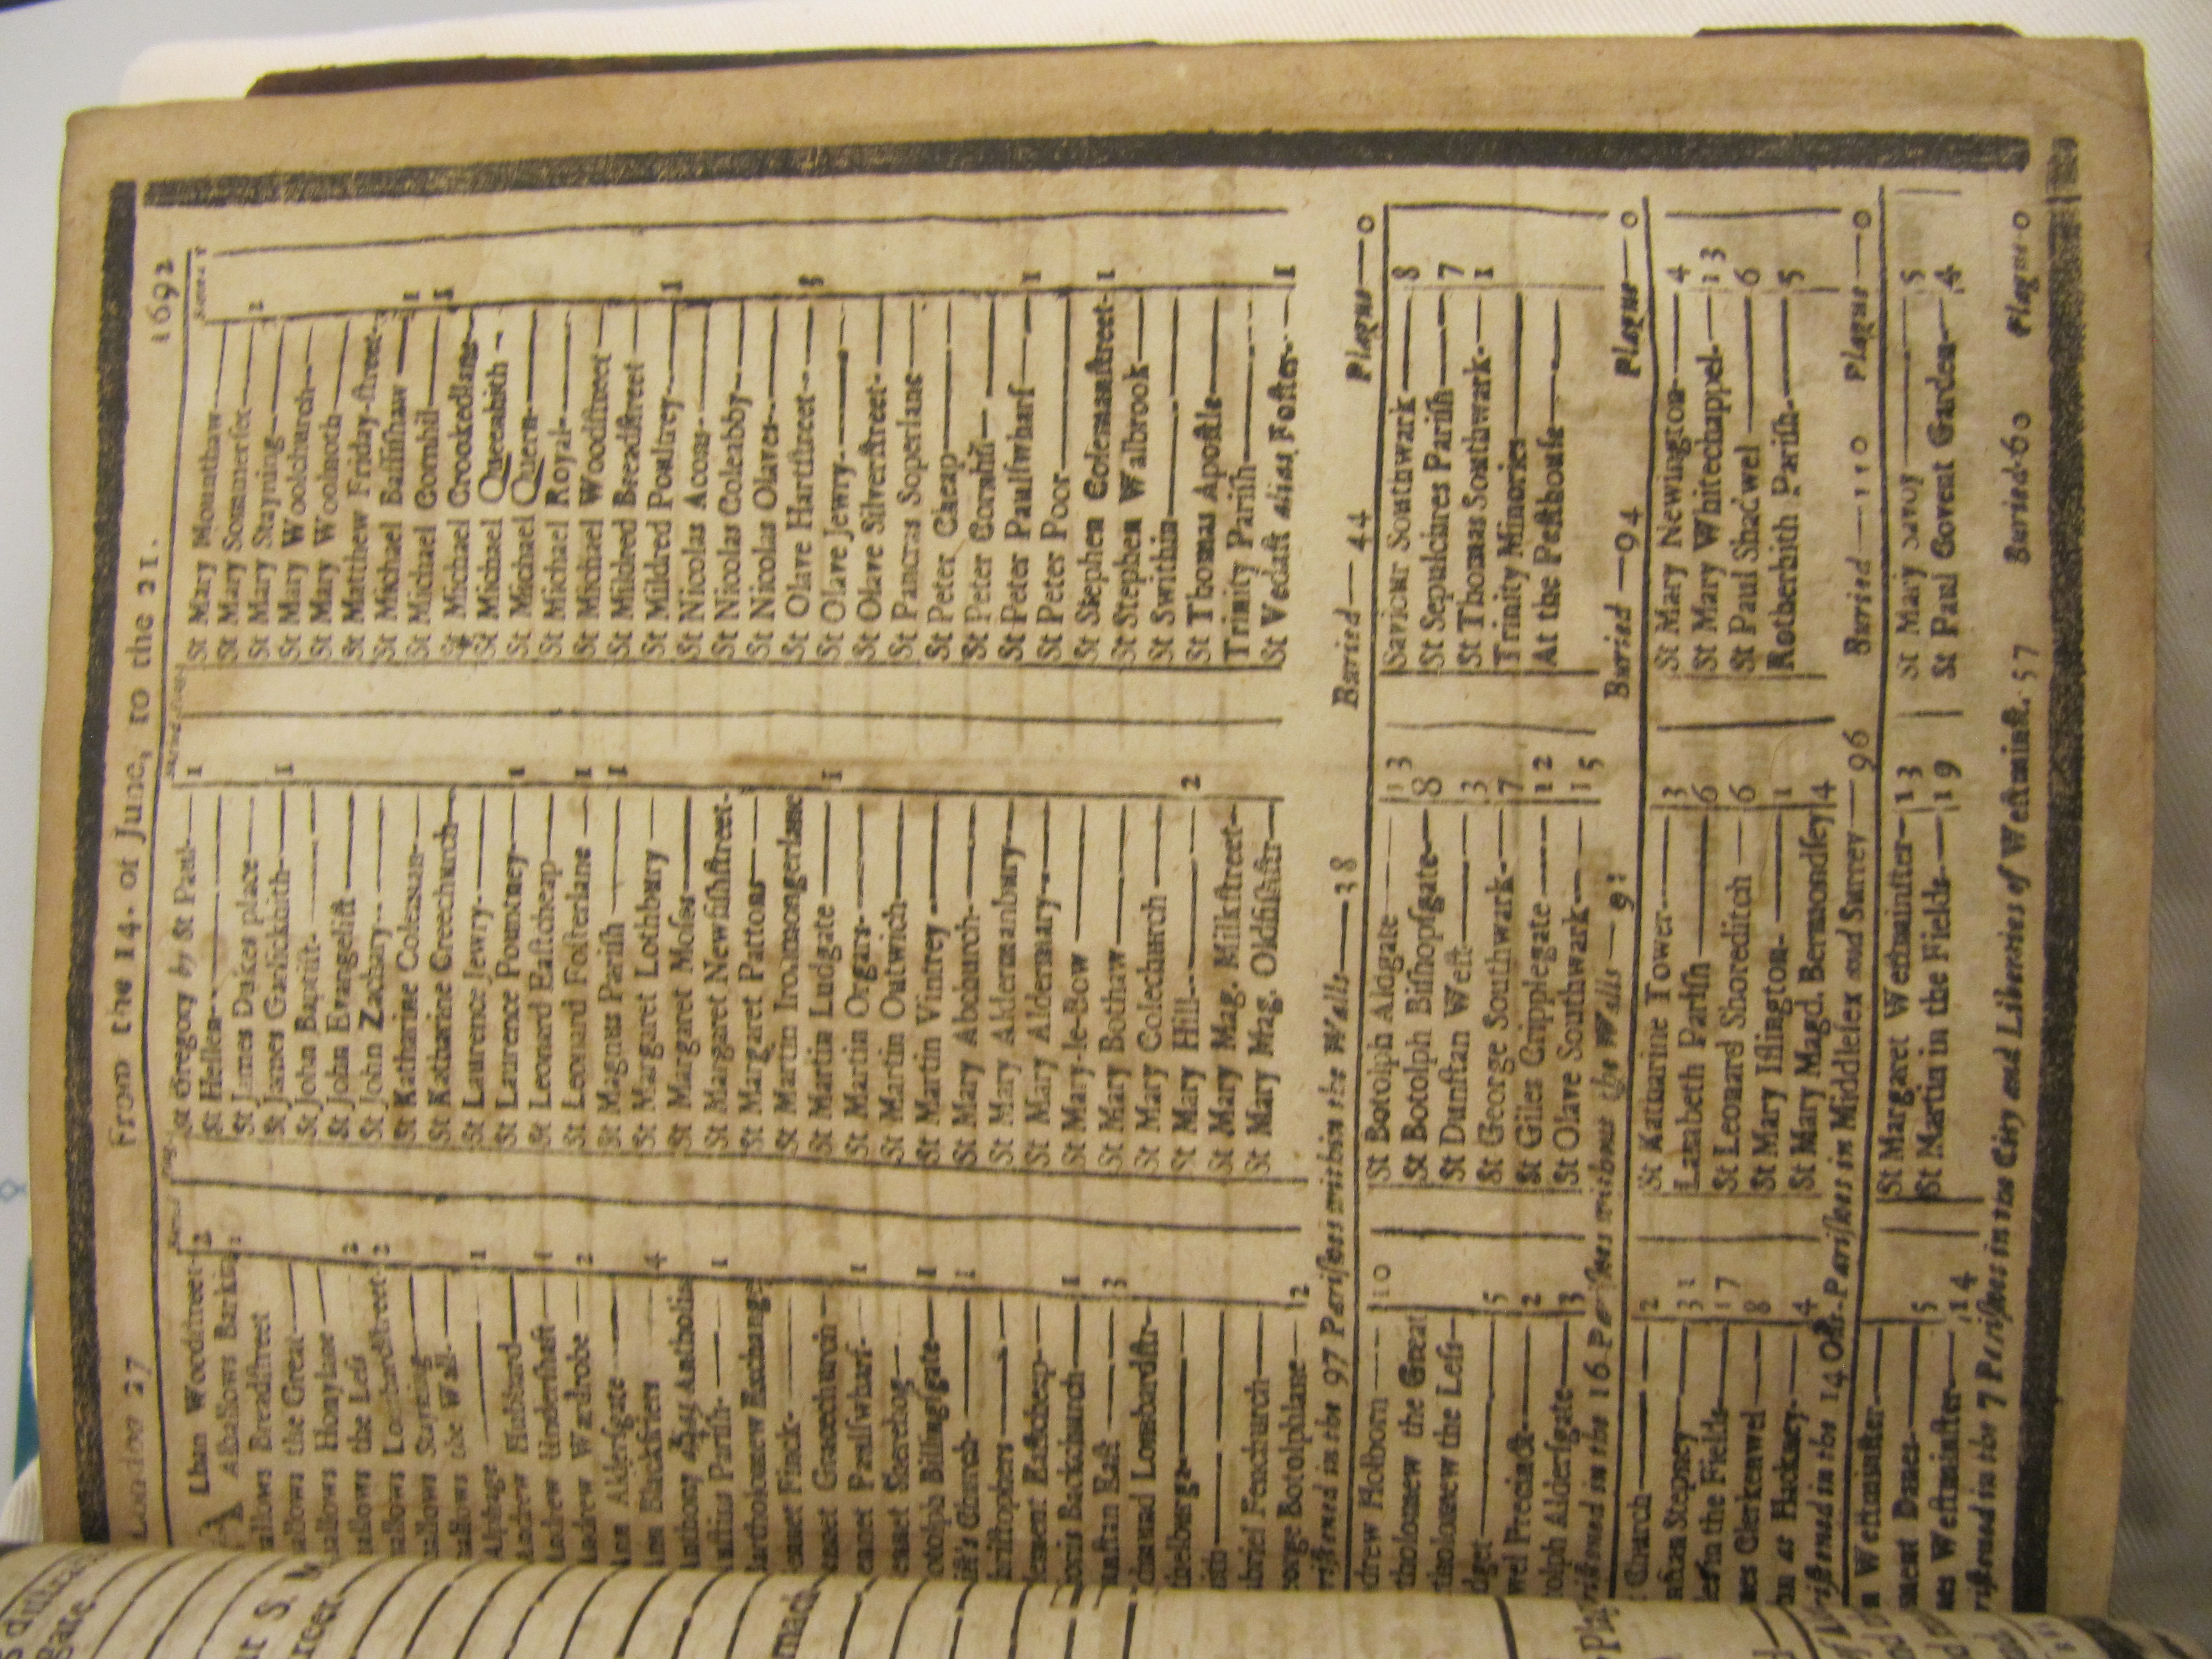 London 27 From the 14. of June, to the 21. 1692
Lban Woodstreet 2
Alhallows Barking 1
allows Breadstreet
allows the Great
allows Honylane
allows the Less 2
allows Lombardstreet 2
allows Stayning
allows the Wall
Alphage 1
Andrew Hubbard
Andrew Undershaft 1
Andrew Wardrobe 2
Ann Aldersgate
Ann Blackfriers 4
Anthony alias Antholin
Austins Parish 1
Bartholomew Exchange
ennet Finck
ennet Gracechurch
ennet Paulswharf 1
ennet Sherehog
otolph Billingsgate 1
Church 1
hristophers
lement Eastcheap
Dionis Backchurch 1
unstan East 3
dmund Lombardstr
thelburga
briel Fenchurch
eorge Botolphlane 2
St Gregory by St Paul 1
St Hellen
St James Dukes place
St James Garlickhith 1
St John Baptist
St John Evangelist
St John Zachary
St Katharine Coleman
St Katharine Creechurch
St Laurence Jewry
St Laurence Pountney 1
St Leonard Eastcheap
St Leonard Fosterlane 1
St Magnus Parish 1
St Margaret Lothbury
St Margaret Moses
St Margaret Newfishstreet
St Margaret Pattons
St Martin Ironmongerlane
St Martin Ludgate 1
St Martin Organs
St Martin Outwich
St Martin Vintrey
St Mary Abchurch
St Mary Aldermanbury
St Mary Aldermary
St Mary-le-Bow
St Mary Bothaw
St Mary Colechurch
St Mary Hill 2
St Mary Mag. Milkstreet
St Mary Mag. Oldfishstr
St Mary Mounthaw
St Mary Sommerset 2
St Mary Stayning
St Mary Woolchurch
St Mary Woolnoth
St Matthew Friday-street
St Michael Bassishaw 1
St Michael Cornhil 1
St Michael Crookedlane
St Michael Queenhith
St Michael Quern
St Michael Royal
St Michael Woodstreet
St Mildred Breadstreet
St Mildred Poultrey 1
St Nicolas Acons
St Nicolas Coleabby
St Nicolas Olaves
St Olave Hartstreet 3
St Olave Jewry
St Olave Silverstreet
St Pancras Soperlane
St Peter Cheap
St Peter Cornhil
St Peter Paulswharf 1
St Peter Poor
St Stephen Colemanstreet 1
St Stephen Walbrook
St Swithin
St Thomas Apostle
Trinity Parish
St Vedast alias Foster 1
ristned in the 97 Parishes within the Walls 38 Buried 44 Plague 0
drew Holborn 10
tholomew the Great
tholomew the Less
dget 5
wel Precinct 2
tolph Aldersgate 3
St Botolph Aldgate 13
St Botolph Bishopsgate 8
St Dunstan West 3
St George Southwark 7
St Giles Cripplegate 12
St Olave Southwark 15
Saviour Southwark 8
St Sepulchres Parish 7
St Thomas Southwark 1
Trinity Minories
At the Pesthouse
ristned in the 16 Parishes without the Walls Buried 94 Plague 0
t Church 2
nstan Stepney 31
les in the Fields 17
mes Clerkenwel 8
hn at Hackney 4
St Katharine Tower 3
Lambeth Parish 6
St Leonard Shoreditch 6
St Mary Islington 1
St Mary Magd. Bermondsey 4
St Mary Newington 4
St Mary Whitechappel 13
St Paul Shadwel 6
Rotherhith Parish 5
ristned in the 14 Out-Parishes in Middlesex and Surrey 96 Buried 110 Plague 0
n Westminster
ment Danes 5
es Westminster 14
St Margaret Westminster 13
St Martin in the Fields 19
St Mary Savoy 5
St Paul Covent Garden 4
ristned in the 7 Parishes in the City and Liberties of Westminst. 57 Buried 60 Plague 0